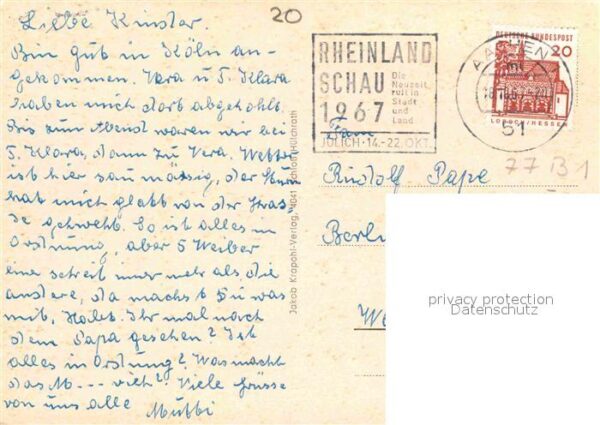 20
Liebe Kinder.
Bin gut in Köln an-
gekommen. Vera u T. Klara
haben mich dort abgehohlt.
Bis zum Abend waren wir bei
T. Klara, dann zu Vera. Wetter
ist hier saumässig, der Sturm
hat mich glatt von der Stras
se gehweht. So ist alles in
Ordnung, aber 5 Weiber
eine schreit mer als die
andere, da machst Du was
mit. Habt Ihr mal nach
dem Papa gesehen? Ist
alles in Ordnung? Was macht
das M... vieh? Viele Grüsse
von uns alle Mutti
Jakob Krapohl-Verlag, 4041
RHEINLAND
SCHAU
1967
Die
Neuzeit
ruft in
Stadt
und
Land
JÜLICH · 14.-22. OKT.
AACHEN
51
DEUTSCHE BUNDESPOST
20
LORSCH/HESSEN
77 B 1
Fam
Rudolf Pape
Berlin
privacy protection
Datenschutz